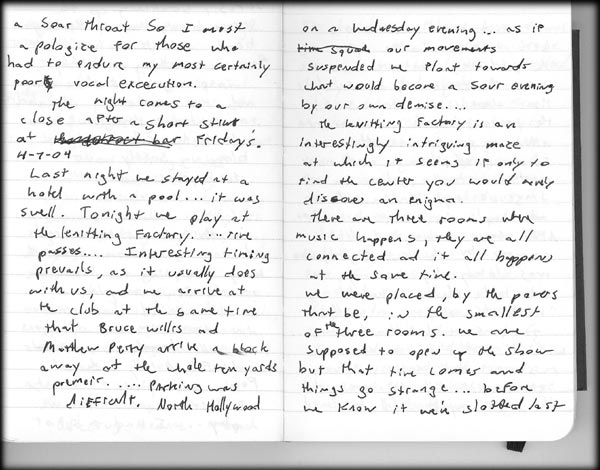 a soar throat so I must
apologize for those who
had to endure my most certainly
poor vocal excecution.
The night comes to a
close after a short stint
at Fridays.
4-7-04
Last night we stayed at a
hotel with a pool... it was
swell. Tonight we play at
the knitting Factory. ... time
passes.... Interesting timing
prevails, as it usually does
with us, and we arrive at
the club at the same time
that Bruce Willis and
Matthew Perry arrive a block
away at the whole ten yards
premeir. ..... Parking was
difficult. North Hollywood
on a wednesday evening... as if
time squad our movements
suspended we float towards
what would become a sour evening
by our own demise....
The knitting Factory is an
interestingly intriguing maze
at which it seems if only to
find the center you would
discover an enigma.
There are three rooms where
music happens, they are all
connected and it all happens
at the same time.
we were placed, by the powers
that be, in the smallest
of the three rooms. we are
supposed to open up the show
but that time comes and
things go strange... before
we know it we're slotted last